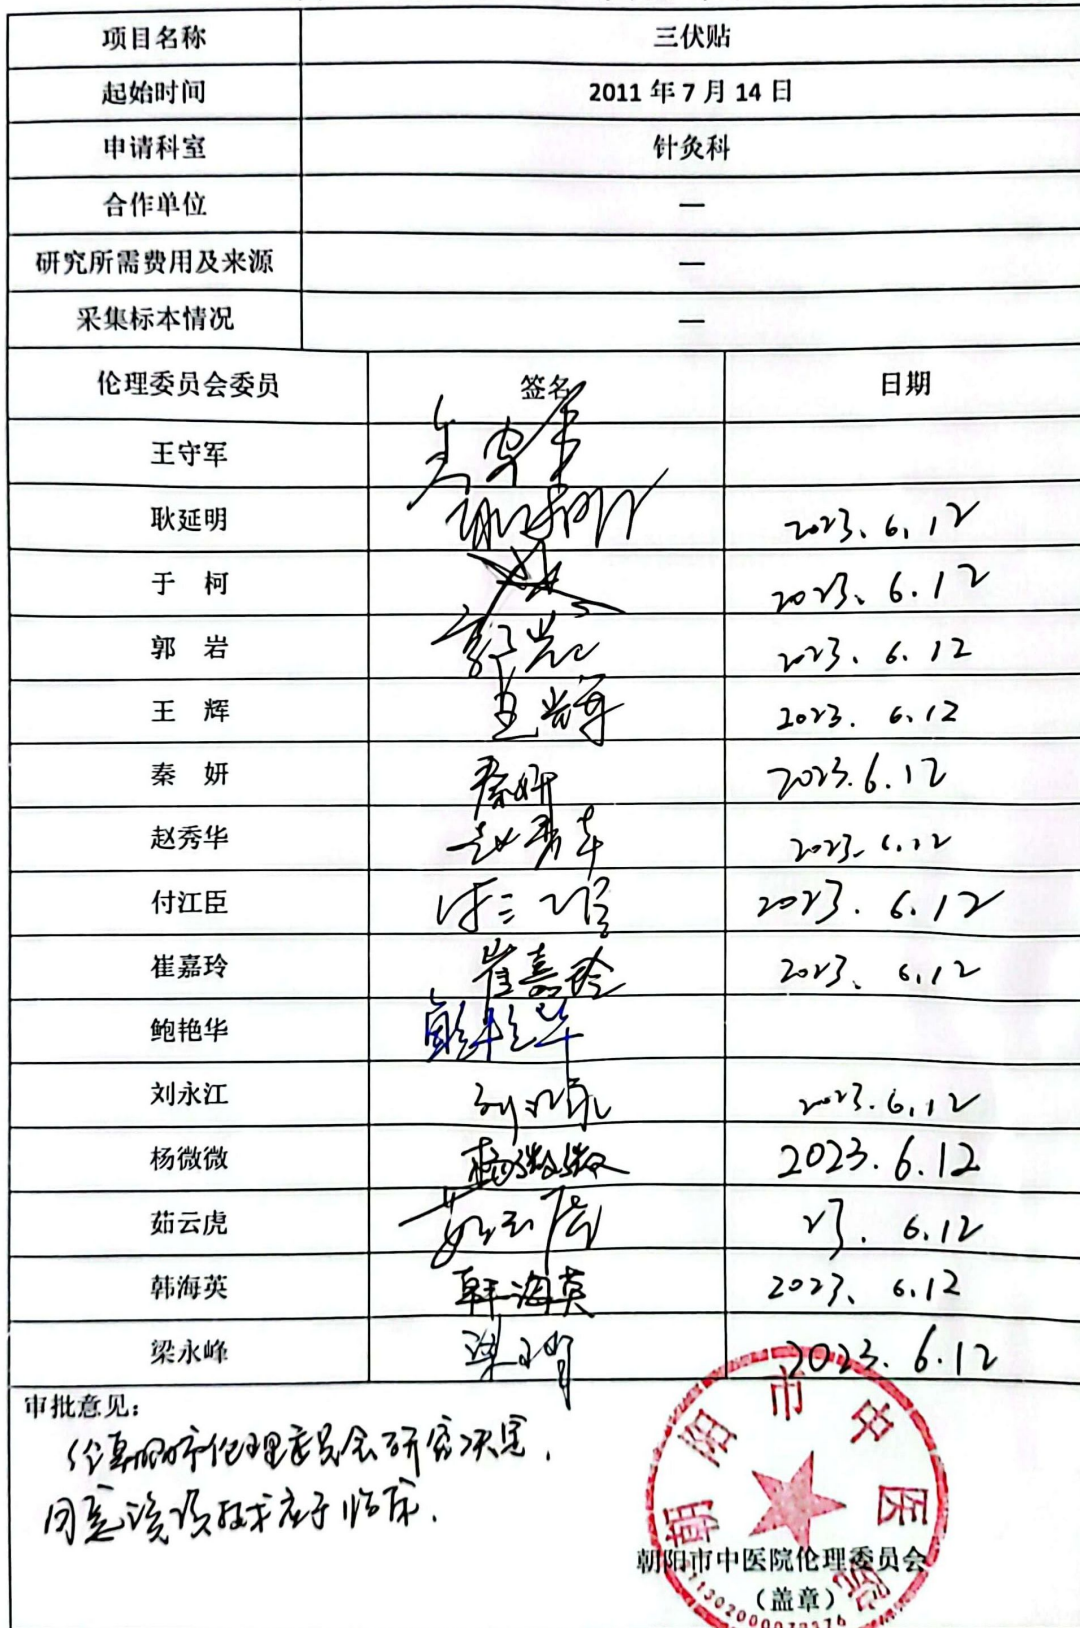 项目名称 三伏贴
起始时间 2011 年 7 月 14 日
申请科室 针灸科
合作单位 —
研究所需费用及来源 —
采集标本情况 —
伦理委员会委员 签名 日期
王守军
耿延明 2023.6.12
于 柯 2023.6.12
郭 岩 郭岩 2023.6.12
王 辉 王辉 2023.6.12
秦 妍 秦妍 2023.6.12
赵秀华 赵秀华 2023.6.12
付江臣 2023.6.12
崔嘉玲 崔嘉玲 2023.6.12
鲍艳华
刘永江 2023.6.12
杨微微 杨微微 2023.6.12
茹云虎 茹云虎 23.6.12
韩海英 韩海英 2023.6.12
梁永峰 2023.6.12
审批意见：
伦理委员会研究决定，
同意该项技术应于临床.
朝阳市中医院
朝阳市中医院伦理委员会
（盖章）